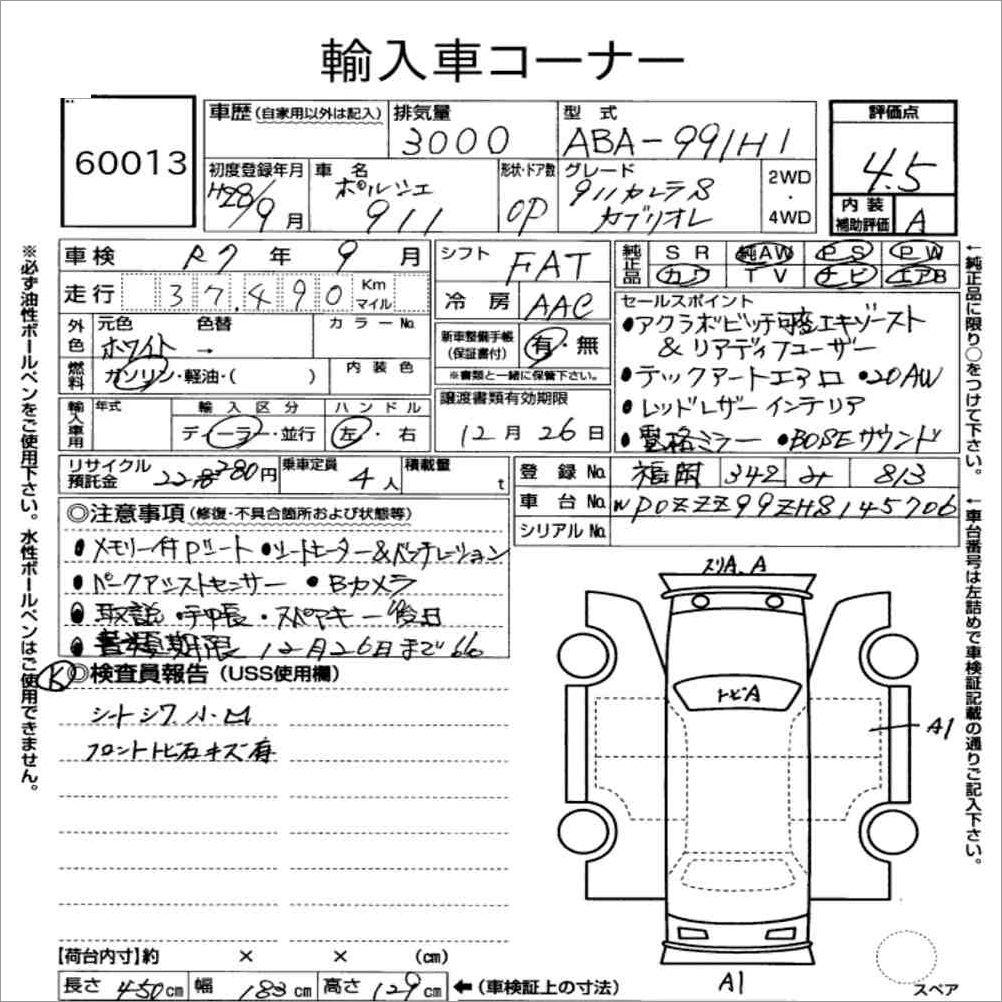 輸入車コーナー
60013
車歴(自家用以外は記入)
排気量
3000
型式
ABA-991H1
評価点
4.5
初度登録年月
H28/9月
車名
ポルシェ
911
形状・ドア数
OP
グレード
911カレラS
カブリオレ
2WD
・
4WD
内装
補助評価
A
車検 R7年 9月
シフト FAT
純正品 SR 純AW PS PW
カワ TV ナビ エアB
走行 37,490 Km マイル
冷房 AAC
セールスポイント
●アクラポビッチ可変エキゾースト
& リアディフューザー
●テックアートエアロ ●20AW
●レッドレザーインテリア
●電格ミラー ●BOSEサウンド
外色
元色 色替
ホワイト →
カラーNo.
新車整備手帳
(保証書付)
有・無
※書類と一緒に保管下さい。
燃料
ガソリン・軽油・( )
内装色
譲渡書類有効期限
12月26日
輸入車用
年式
輸入区分
ディーラー・並行
ハンドル
左・右
リサイクル
預託金
280円
乗車定員
4人
積載量
t
登録No. 福岡 342 み 813
車台No. WP0ZZZ99ZHS145706
シリアルNo.
◎注意事項(修復・不具合箇所および状態等)
●メモリー付Pシート ●シートヒーター&ベンチレーション
●パークアシストセンサー ●Bカメラ
●取説・手帳・スペアキー 後日
●書類期限 12月26日まで
K
◎検査員報告(USS使用欄)
シートシワ小・凹
フロントトビ石キズ有
スリA、A
トビA
A1
A1
スペア
【荷台内寸】約 × × (cm)
長さ 450cm 幅 183cm 高さ 129cm ←(車検証上の寸法)
※必ず油性ボールペンをご使用下さい。水性ボールペンはご使用できません。
←純正品に限り○をつけて下さい。
←車台番号は左詰めで車検証記載の通りご記入下さい。